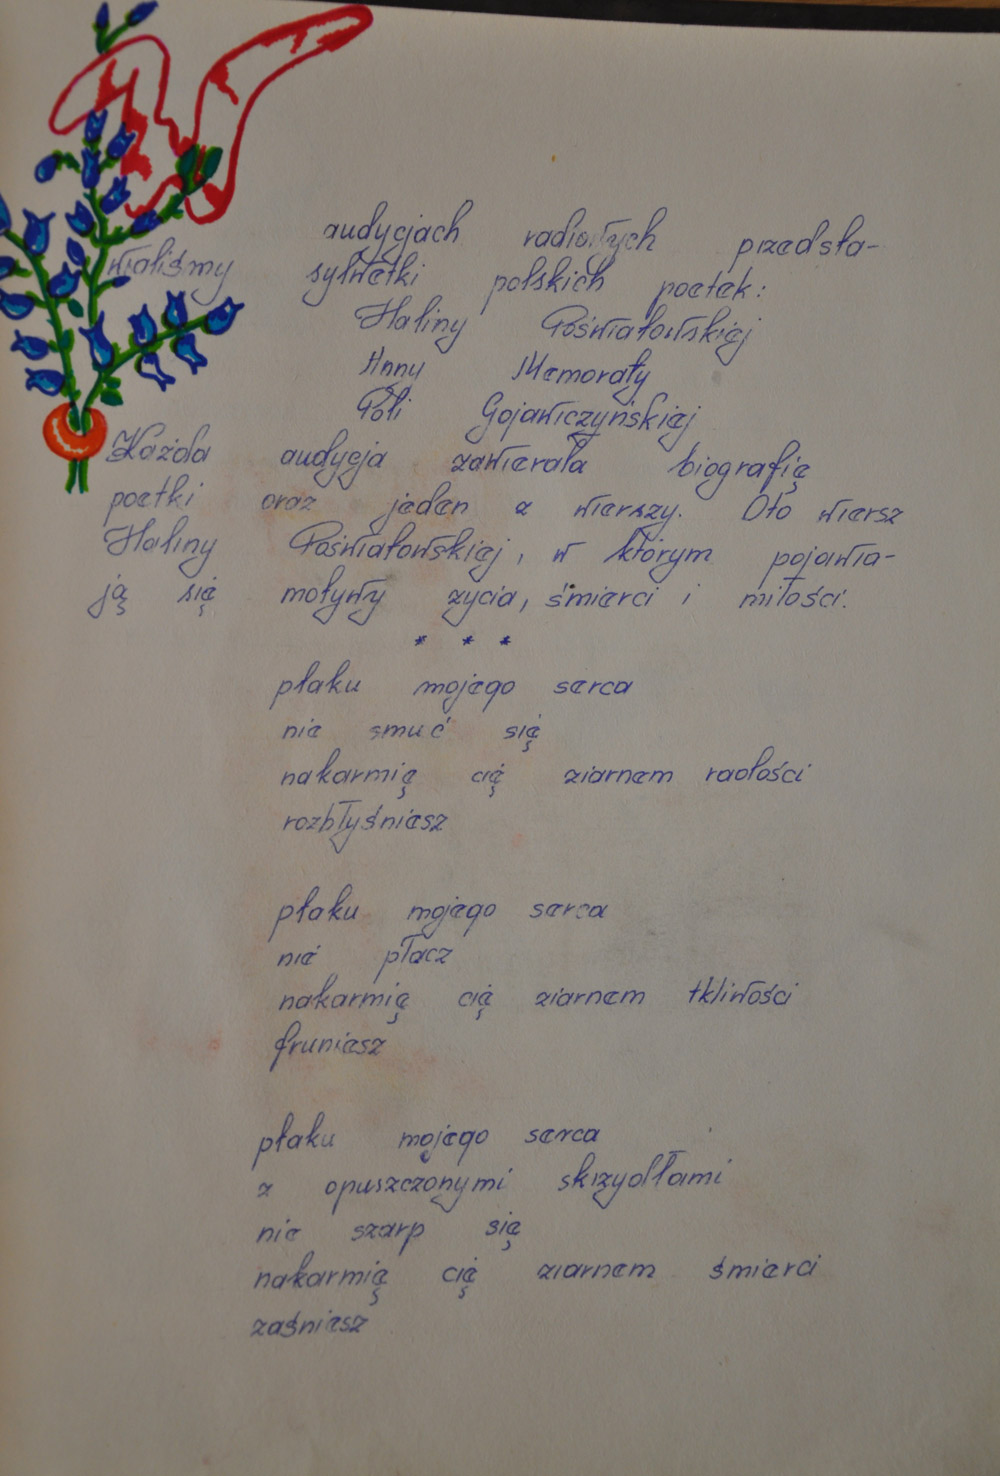 W audycjach radiowych przedsta-
wialiśmy sylwetki polskich poetek:
Haliny Poświatowskiej
Anny Memoraty
Poli Gojawiczyńskiej
Każda audycja zawierała biografię
poetki oraz jeden z wierszy. Oto wiersz
Haliny Poświatowskiej, w którym pojawia-
ją się motywy życia, śmierci i miłości.
* * *
ptaku mojego serca
nie smuć się
nakarmię cię ziarnem radości
rozbłyśniesz
ptaku mojego serca
nie płacz
nakarmię cię ziarnem tkliwości
fruniesz
ptaku mojego serca
z opuszczonymi skrzydłami
nie szarp się
nakarmię cię ziarnem śmierci
zaśniesz